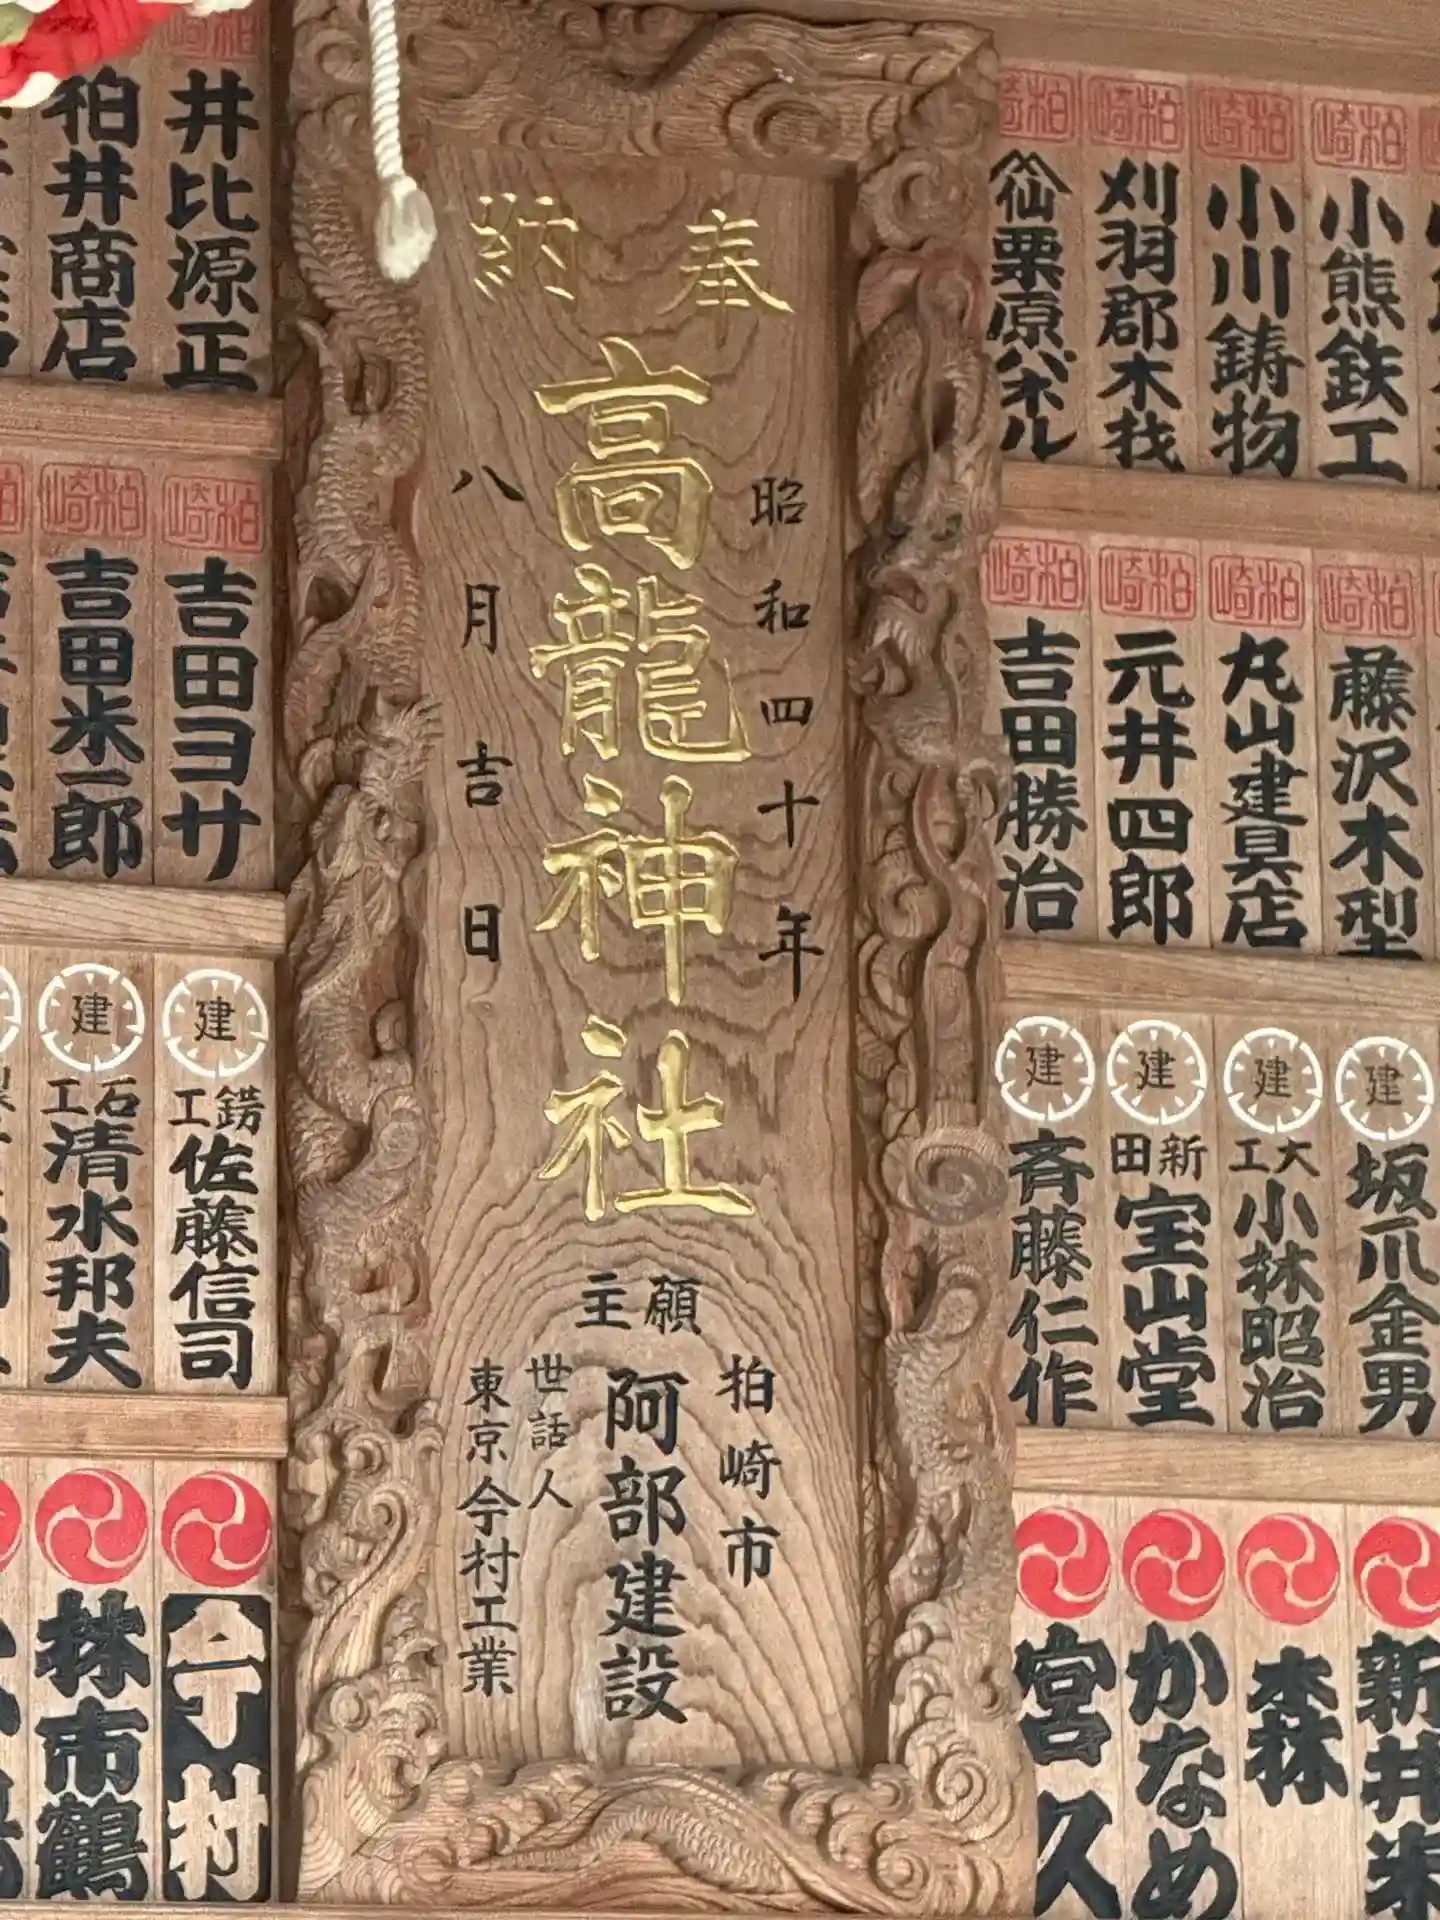 奉納
高龍神社
昭和四十年
八月吉日
願主
柏崎市
阿部建設
世話人
東京今村工業
柏崎
小熊鉄工
柏崎
小川鋳物
柏崎
刈羽郡木我
柏崎
仙栗原パネル
柏崎
藤沢木型
柏崎
丸山建具店
柏崎
元井四郎
柏崎
吉田勝治
建
坂爪金男
建
大工
小林昭治
建
新田
宝山堂
建
斉藤仁作
新井米
森
かなめ
宮久
柏崎
井比源正
柏井商店
柏崎
吉田ヨサ
柏崎
吉田米一郎
建
錺工
佐藤信司
建
石工
清水邦夫
今村
林市鶴